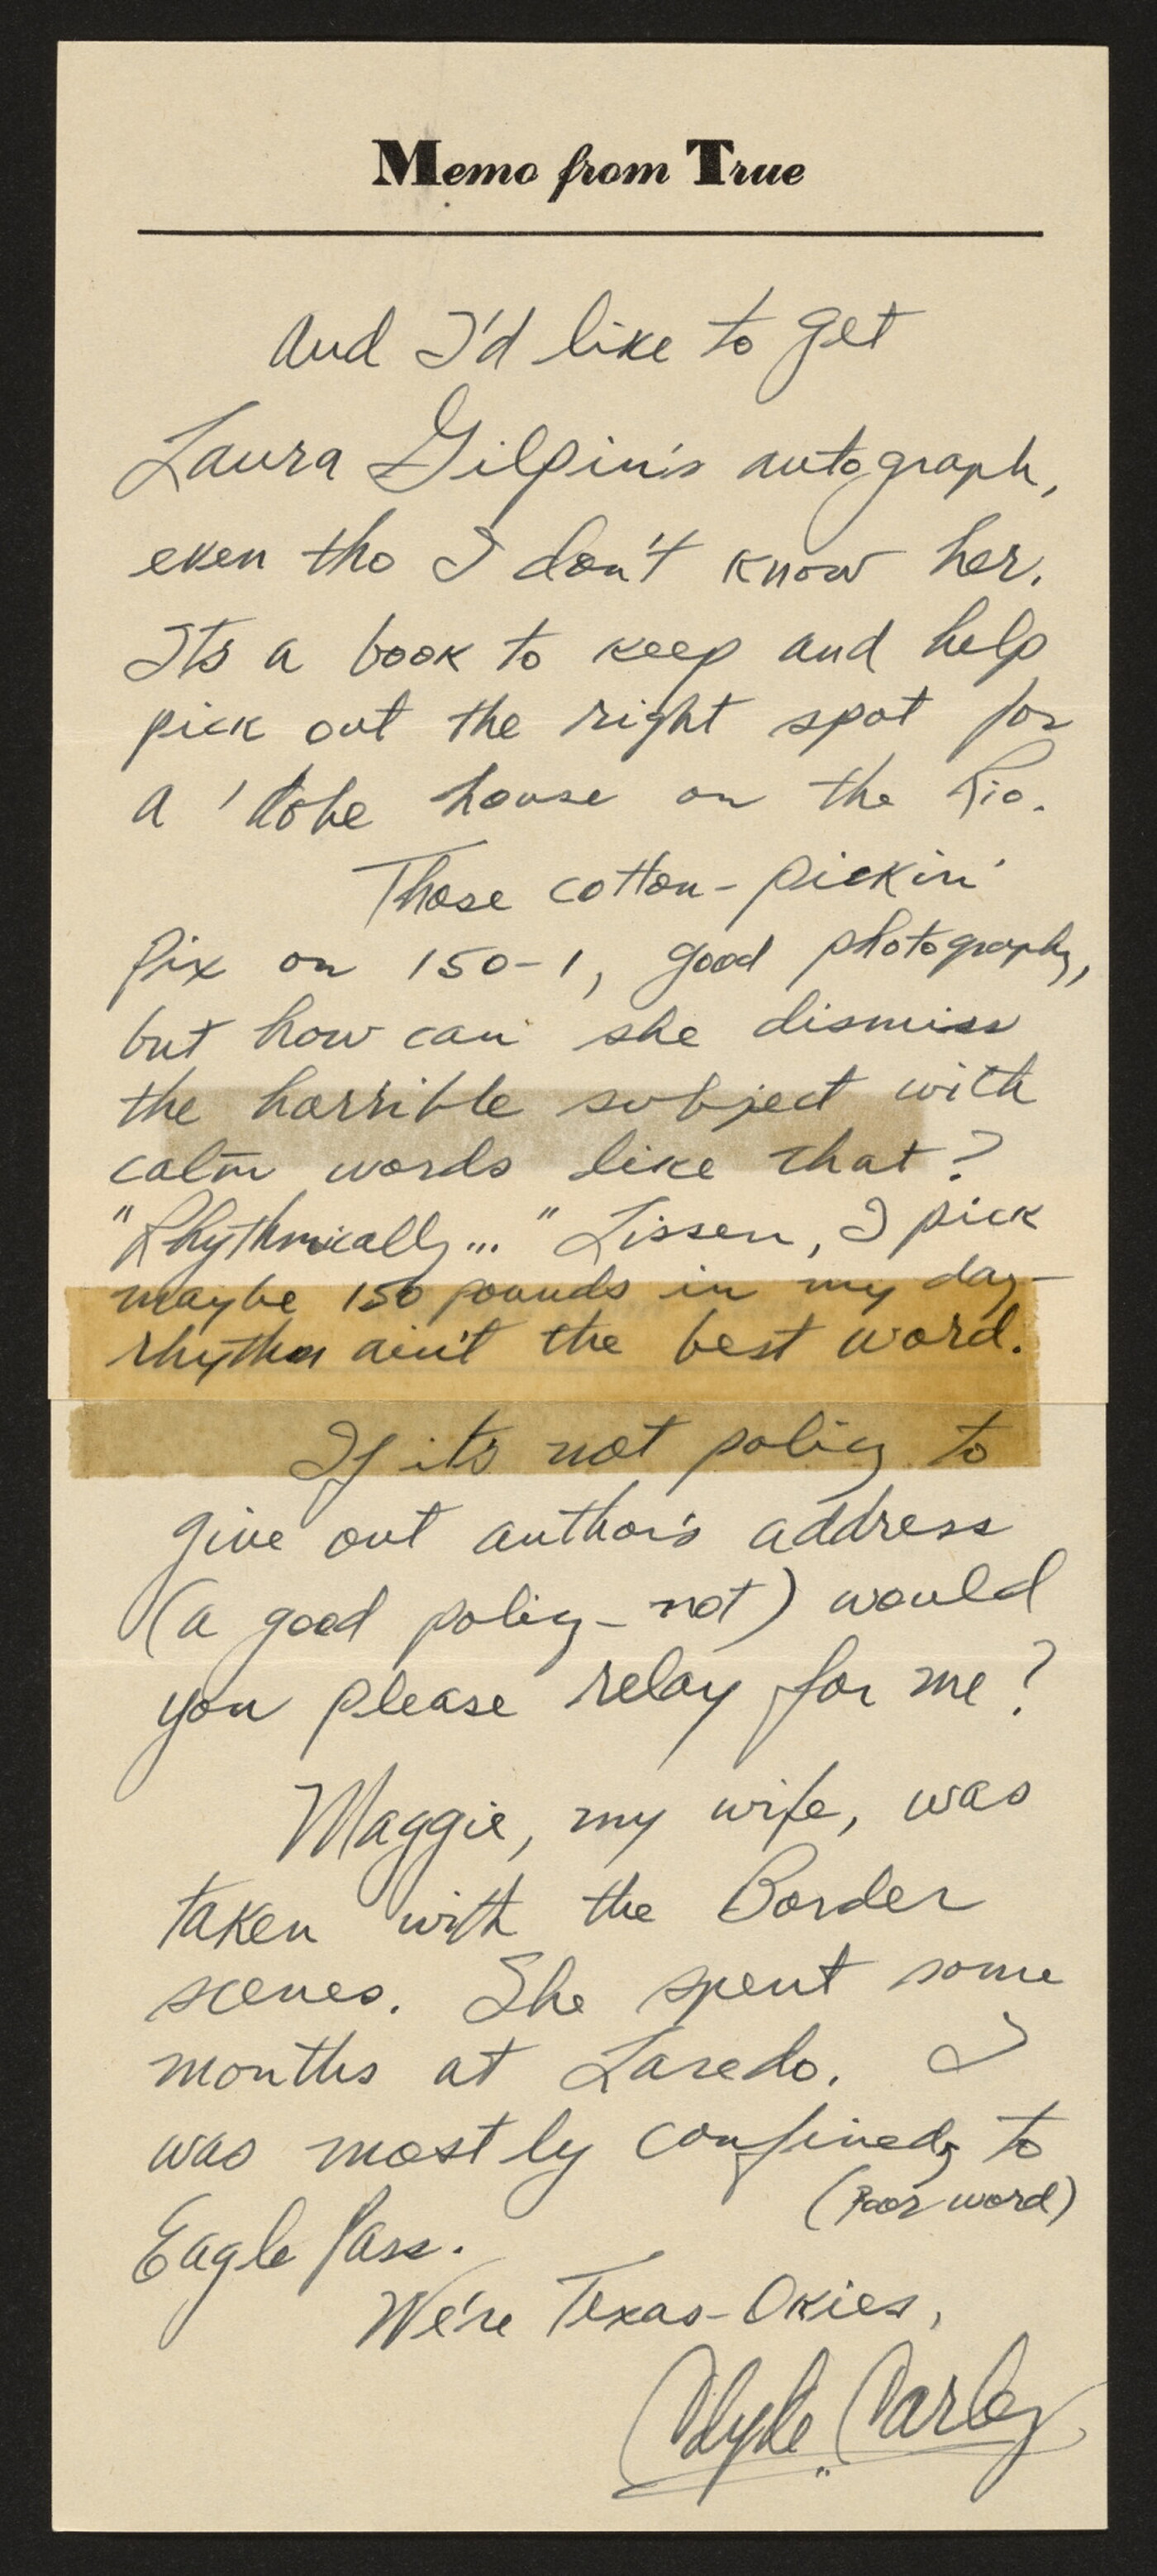 Memo from True
And I'd like to get
Laura Gilpin's autograph,
even tho I don't know her.
Its a book to keep and help
pick out the right spot for
a 'dobe house on the Rio.
Those cotton-pickin'
pix on 150-1, good photography,
but how can she dismiss
the horrible subject with
calm words like that?
"Rhythmically..." Lissen, I pick
maybe 150 pounds in my day—
rhythm ain't the best word.
If it's not policy to
give out author's address
(a good policy - not) would
you please relay for me?
Maggie, my wife, was
taken with the Border
scenes. She spent some
months at Laredo. I
was mostly confined to
(Poor word)
Eagle Pass.
We're Texas-Okies,
Clyde Carley